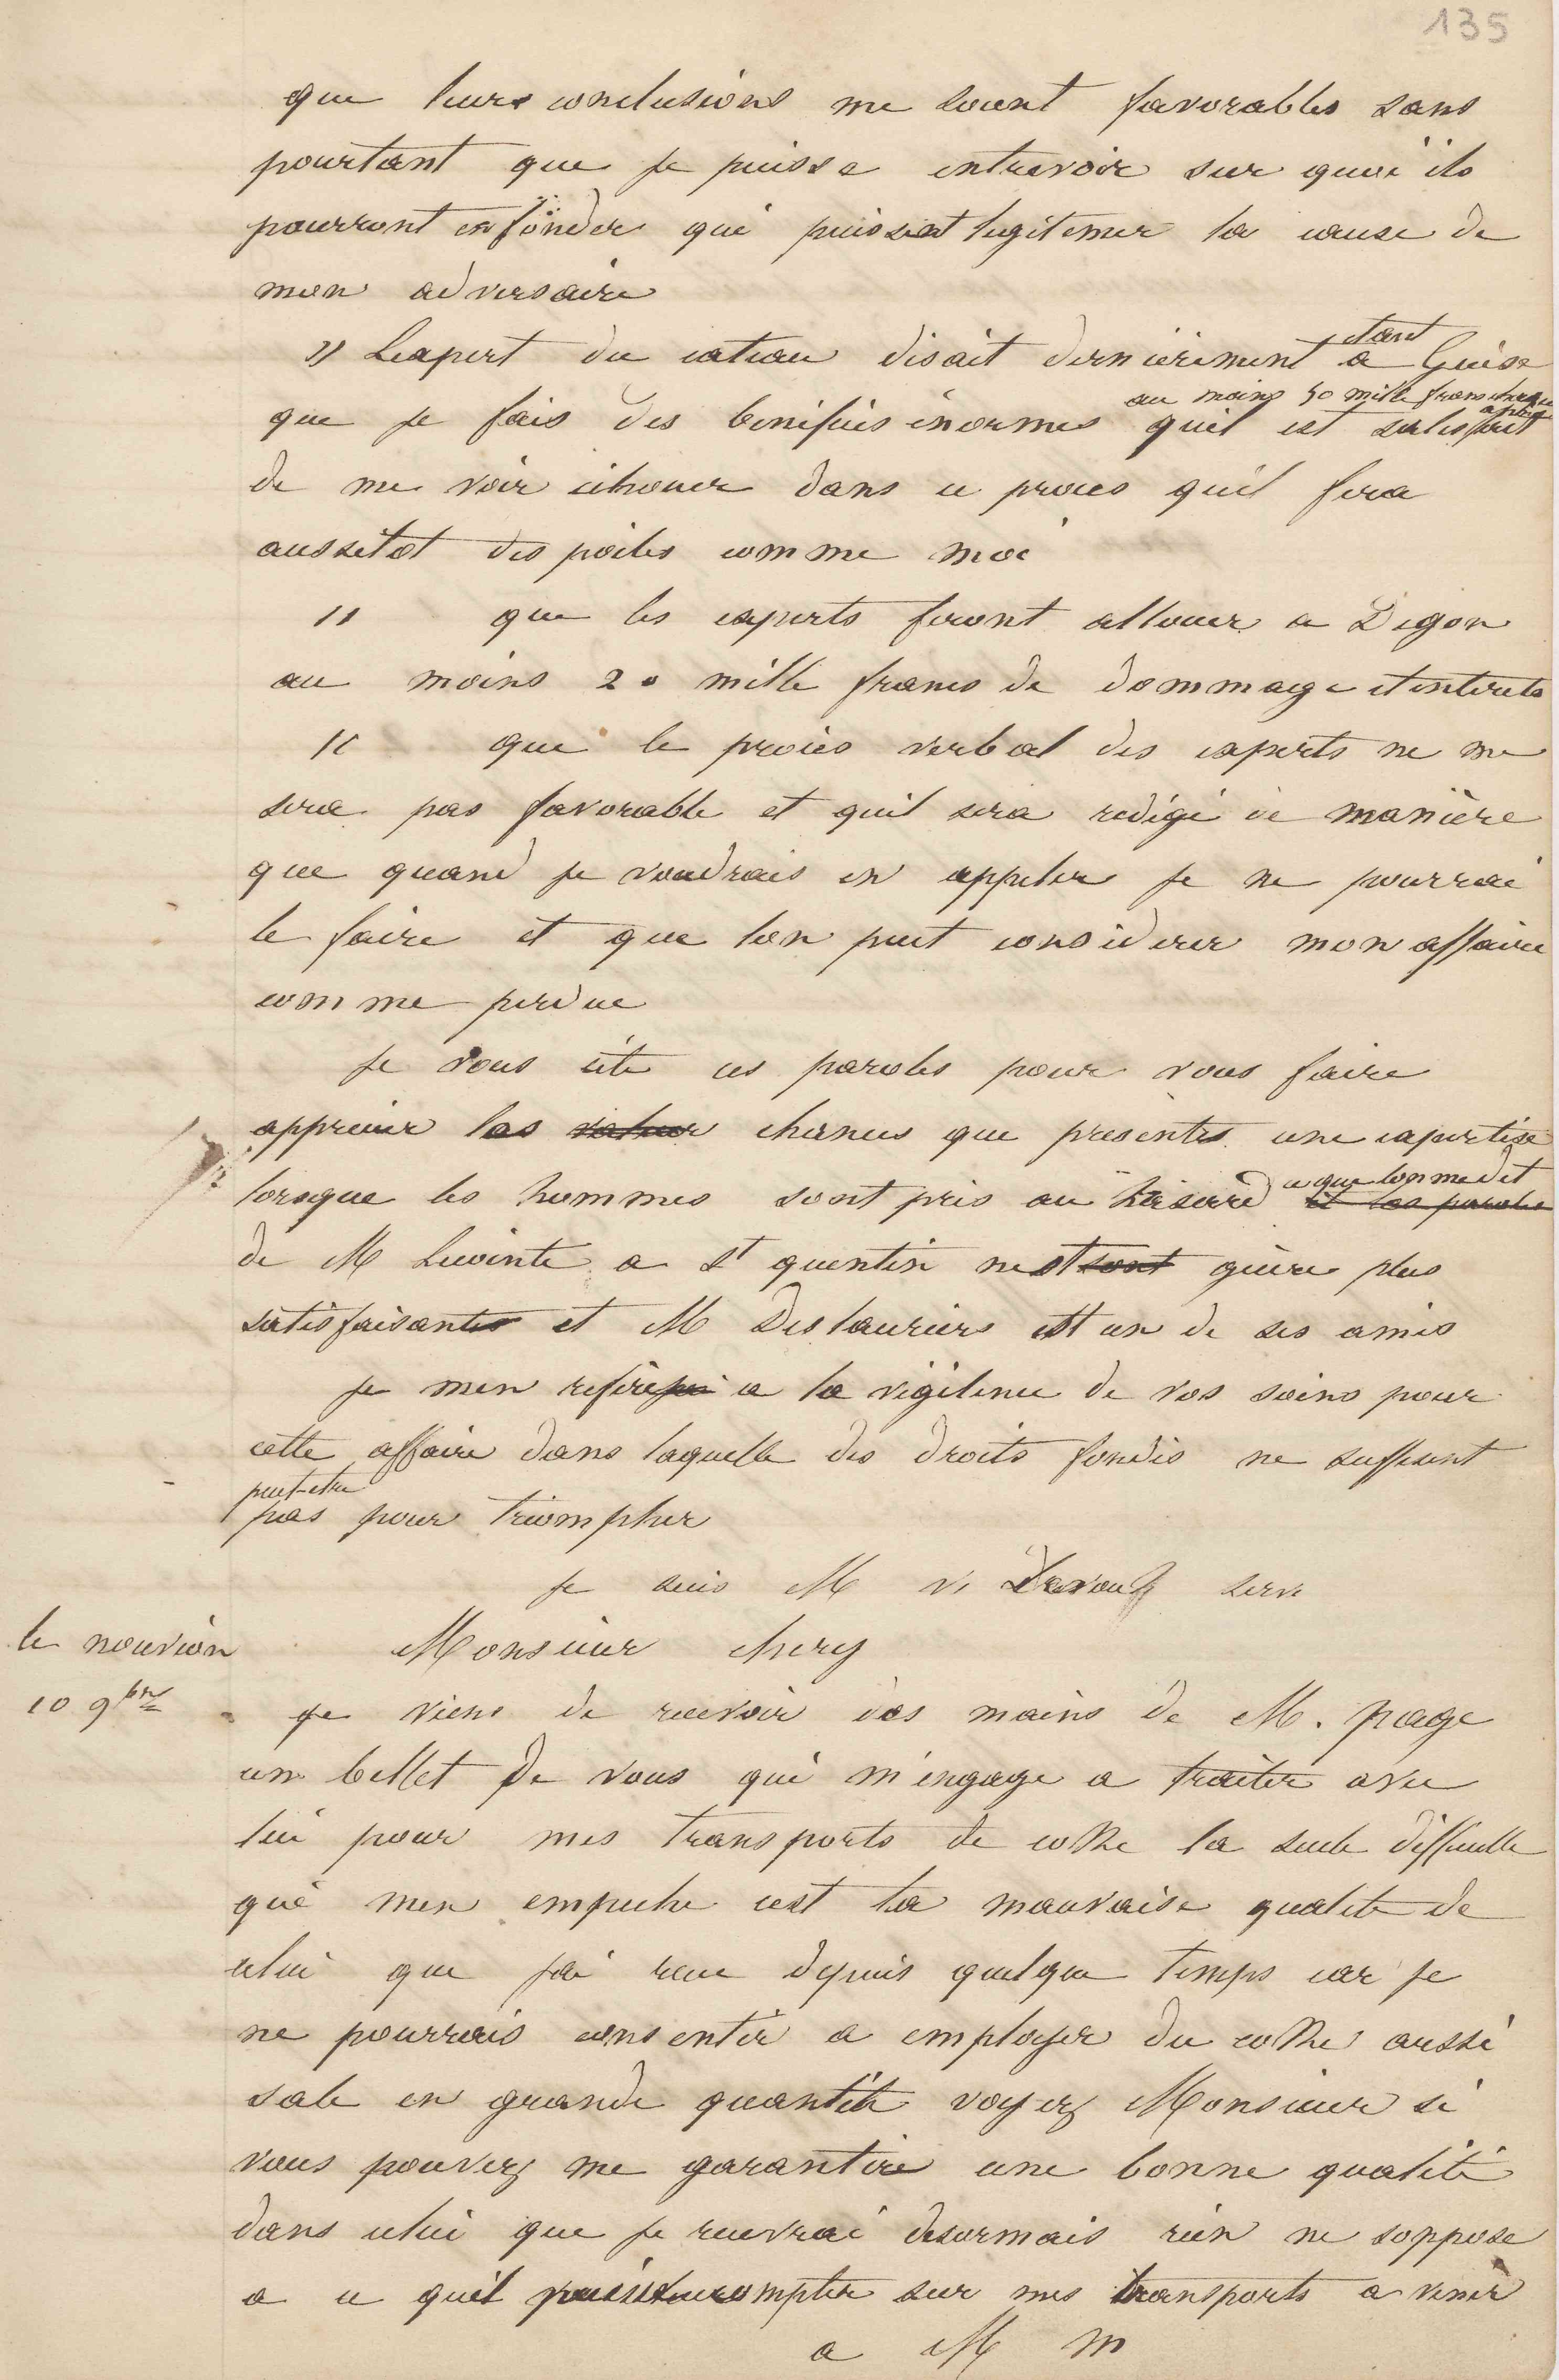 135
que leurs conclusions me soient favorables sans
pourtant que je puisse entrevoir sur quoi ils
pourront en fonder qui puissent legitimer la cause de
mon adversaire
" Lexpert du cateau disait dernièrement etant a Guise
que je fais des benifices énormes au moins 50 mille francs quil est satisfait
de me voir échouer dans ce proces quil fera
aussitot des poiles comme moi
" que les experts feront allouer a Degon
au moins 20 mille francs de dommage et interets
" que le procès verbal des experts ne me
sera pas favorable et quil sera redigé de manière
que quand je voudrais en appeler je ne pourrai
le faire et que lon peut considerer mon affaire
comme perdue
je vous cite ces paroles pour vous faire
apprecier les valeur chances que presentes une expertise
lorsque les hommes sont pris au hasard ce que lon me dit et les paroles
de M Lecointe a St quentin nest sont guère plus
satisfaisantes et M Deslauriers est un de ses amis
je men refère a la vigilence de vos soins pour
cette affaire dans laquelle des droits fondés ne suffisent
peut-etre
pas pour triompher
je suis M v Devoué serv
le nouvion
10 9bre
Monsieur chery
je viens de recevoir des mains de M. page
un billet de vous qui m'engage a traiter avec
lui pour mes transports de coke la seule difficulte
qui men empeche cest la mauvaise qualite de
celui que jai recu depuis quelque temps car je
ne pourrais consentir a employer du coke aussi
sale en grande quantité voyez Monsieur si
vous pouvez me garantire une bonne qualité
dans celui que je recevrai desormais rien ne soppose
a ce quil puisse compter sur mes transports a venir
a M m